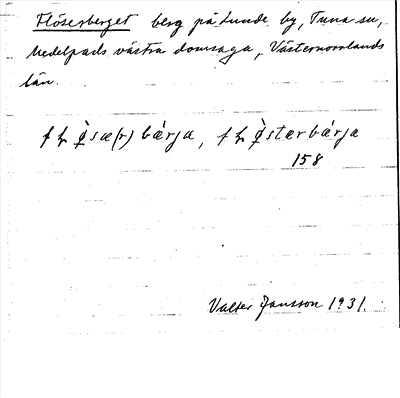 Flöserberget berg på Lunde by, Tuna sn,
Medelpads västra domsaga, Västernorrlands
län.
158
Valter Jansson 1931.